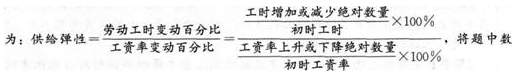 为：供给弹性=劳动工时变动百分比/工资率变动百分比=(工时增加或减少绝对数量/初时工时×100%)/(工资率上升或下降绝对数量/初时工资率×100%)，将题中数